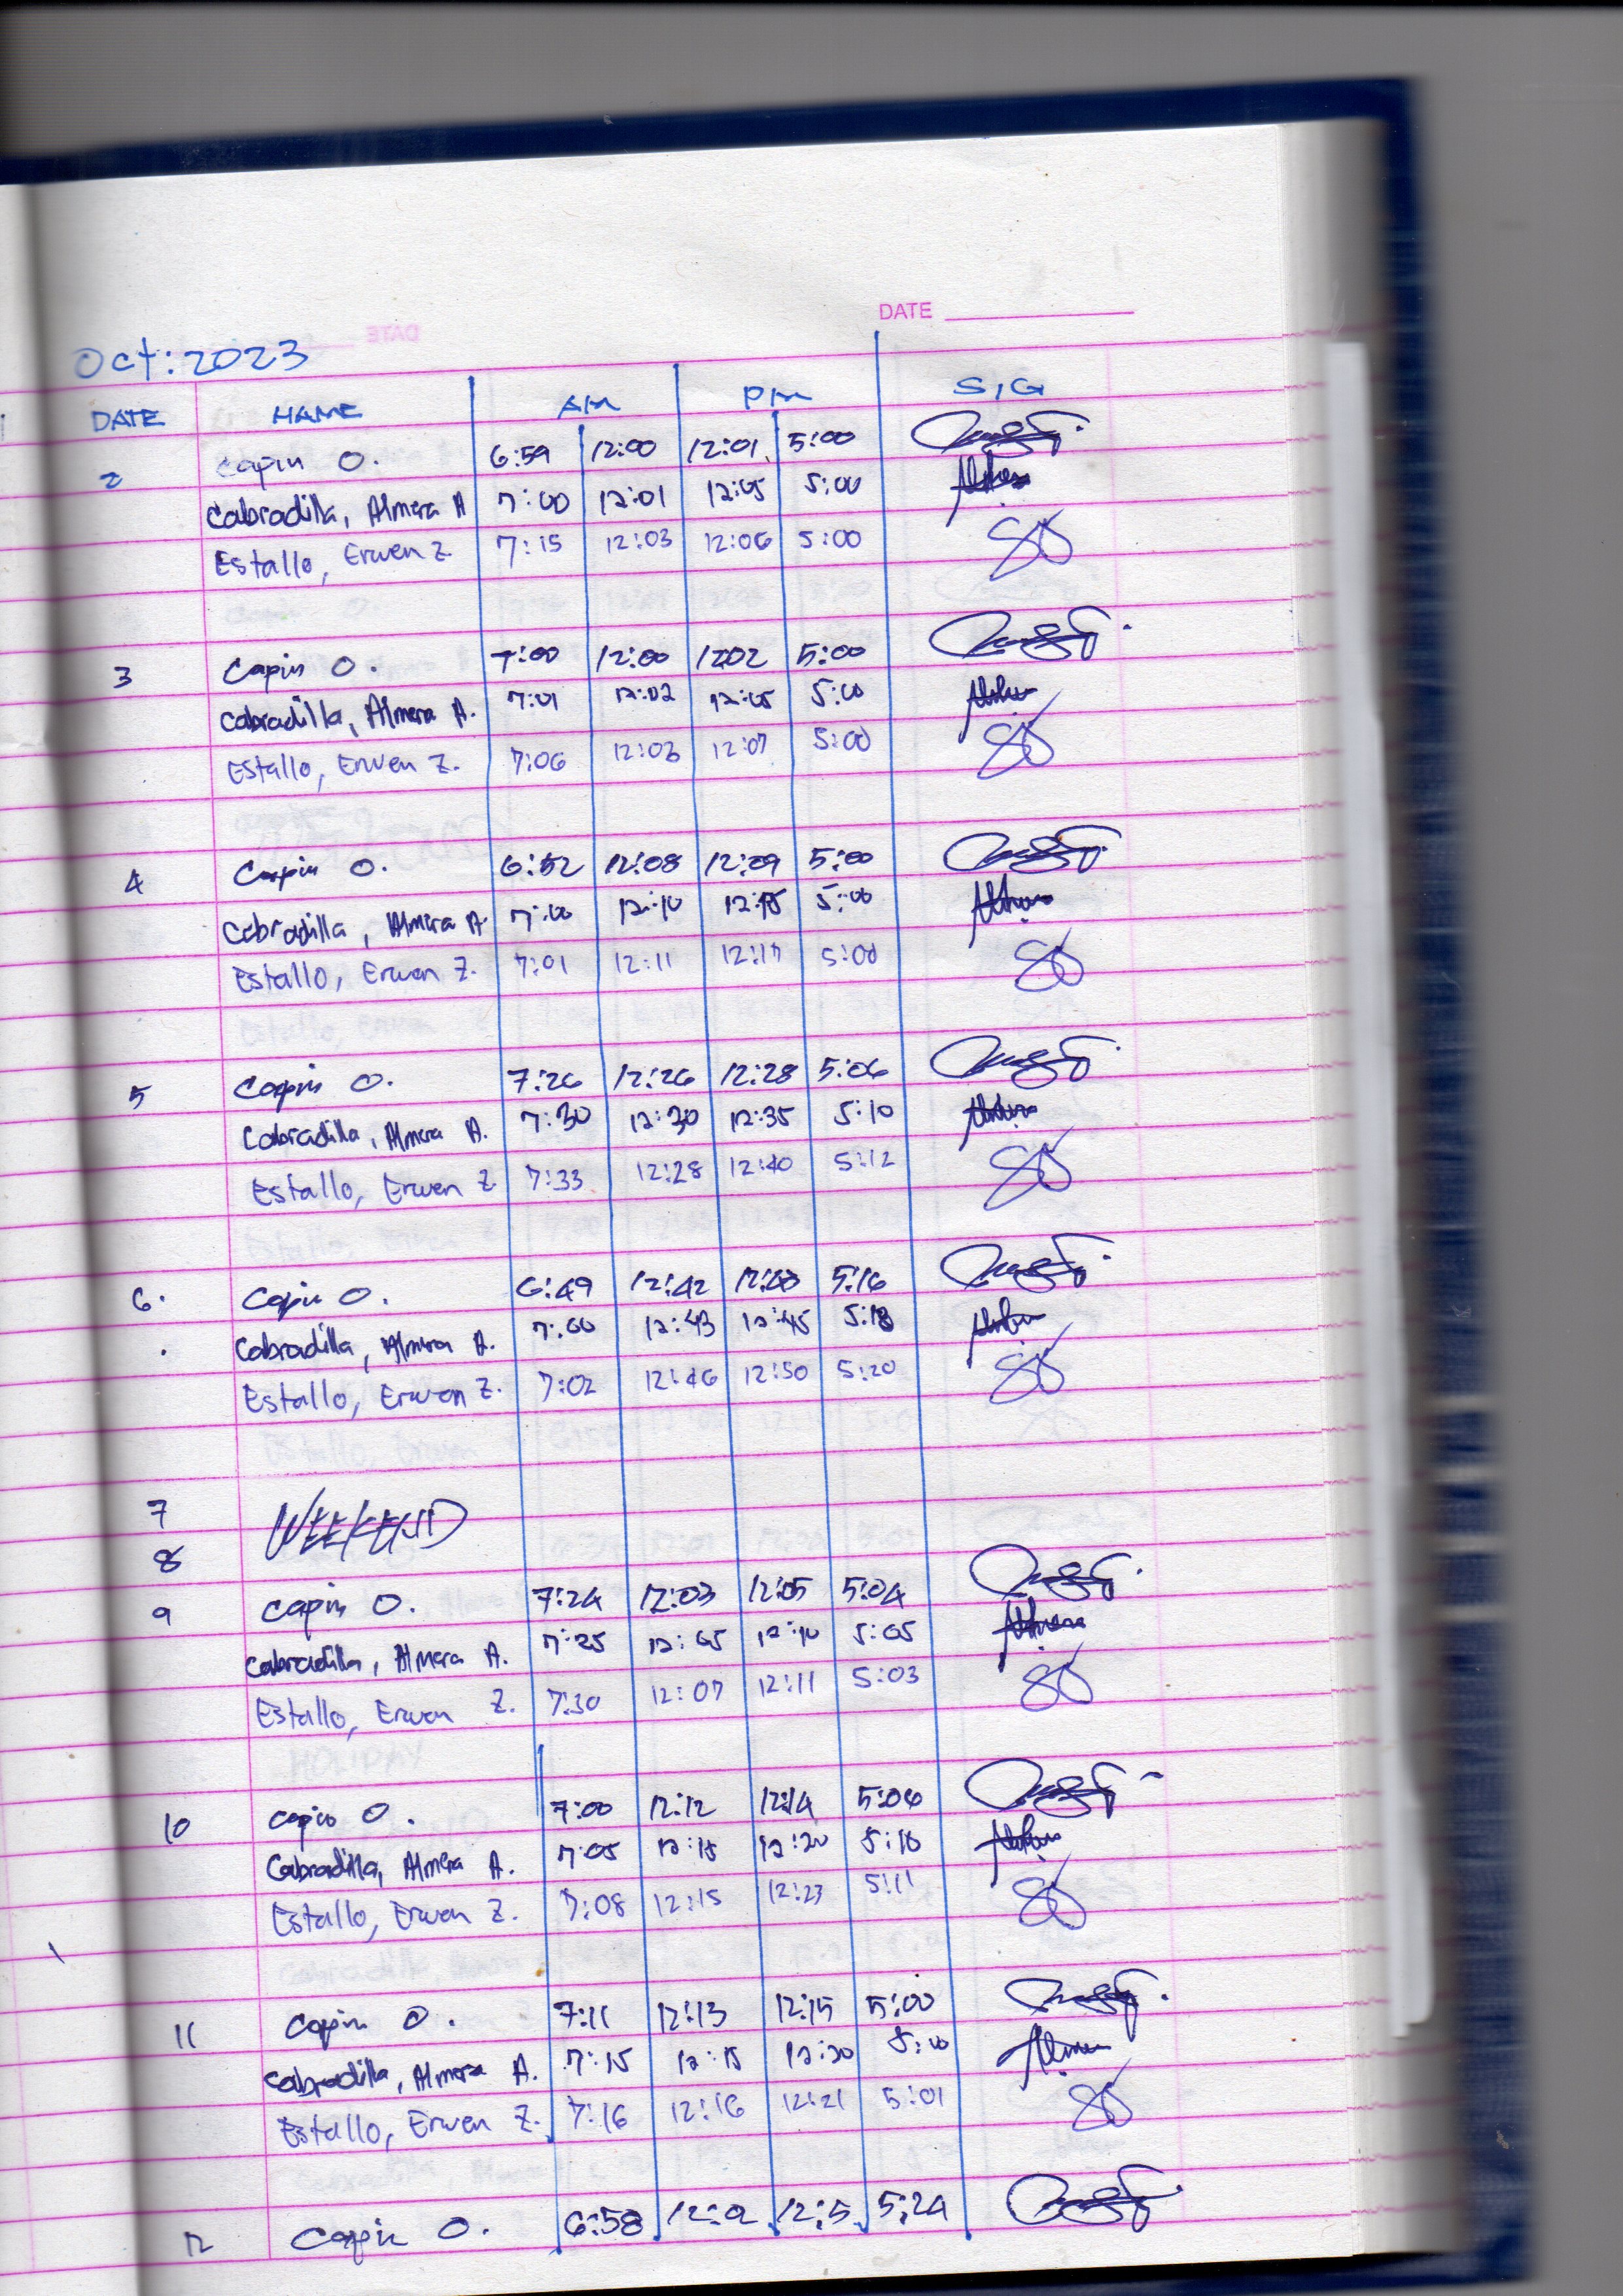 DATE
Oct: 2023
DATE NAME AM PM SIG
2 Capin O. 6:59 12:00 12:01 5:00
Cabradilla, Almera A 7:00 12:01 12:05 5:00
Estallo, Erwen Z. 7:15 12:03 12:06 5:00
3 Capin O. 7:00 12:00 1202 5:00
Cabradilla, Almera A. 7:01 12:02 12:05 5:00
Estallo, Erwen Z. 7:06 12:03 12:07 5:00
4 Capin O. 6:52 12:08 12:09 5:00
Cabradilla, Almera A. 7:00 12:10 12:15 5:00
Estallo, Erwen Z. 7:01 12:11 12:17 5:00
5 Capin O. 7:26 12:26 12:28 5:06
Cabradilla, Almera A. 7:30 12:30 12:35 5:10
Estallo, Erwen Z 7:33 12:28 12:40 5:12
6. Capin O. 6:49 12:42 12:43 5:16
Cabradilla, Almera A. 7:00 12:43 12:45 5:18
Estallo, Erwen Z. 7:02 12:46 12:50 5:20
7 WEEKEND
8
9 Capin O. 7:24 12:03 12:05 5:04
Cabradilla, Almera A. 7:25 12:05 12:10 5:05
Estallo, Erwen Z. 7:30 12:07 12:11 5:03
10 Capin O. 7:00 12:12 12:14 5:06
Cabradilla, Almera A. 7:05 12:15 12:20 5:10
Estallo, Erwen Z. 7:08 12:15 12:23 5:11
11 Capin O. 7:11 12:13 12:15 5:00
Cabradilla, Almera A. 7:15 12:15 12:20 5:00
Estallo, Erwen Z. 7:16 12:16 12:21 5:01
12 Capin O. 6:58 5:24